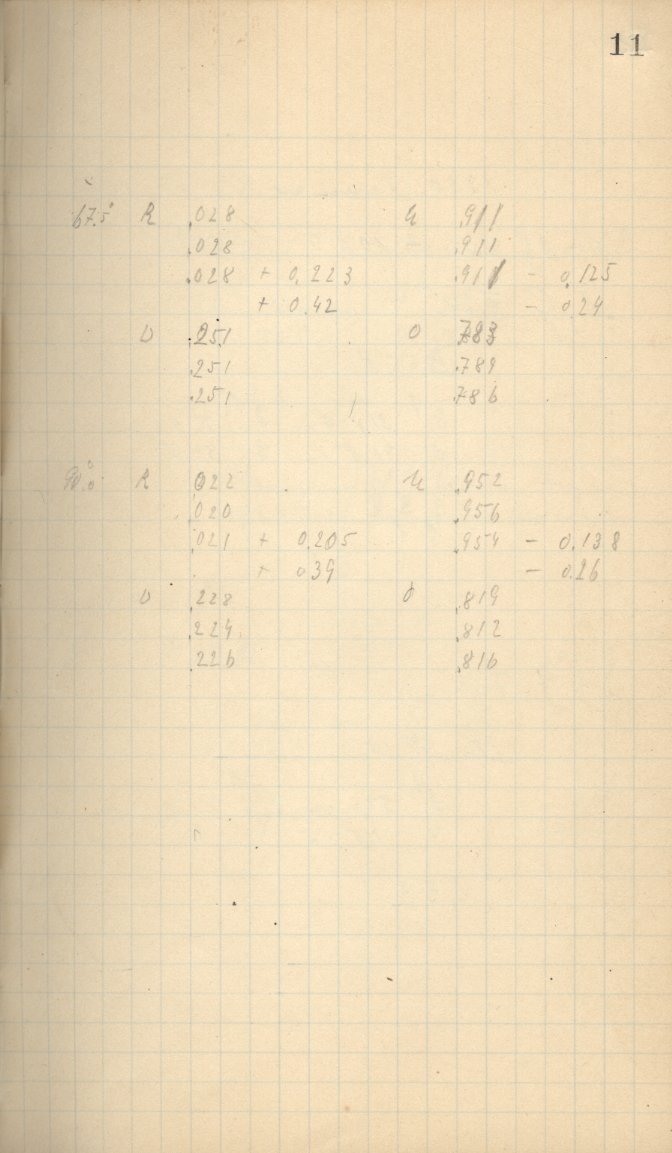 11
67.5° R .028 U .911
.028 .911
.028 + 0.223 .911 - 0.125
+ 0.42 - 0.24
O .251 O .783
.251 .789
.251 .786
90.0° R .022 U .952
.020 .956
.021 + 0.205 .954 - 0.138
+ 0.39 - 0.26
O .228 O .819
.224 .812
.226 .816